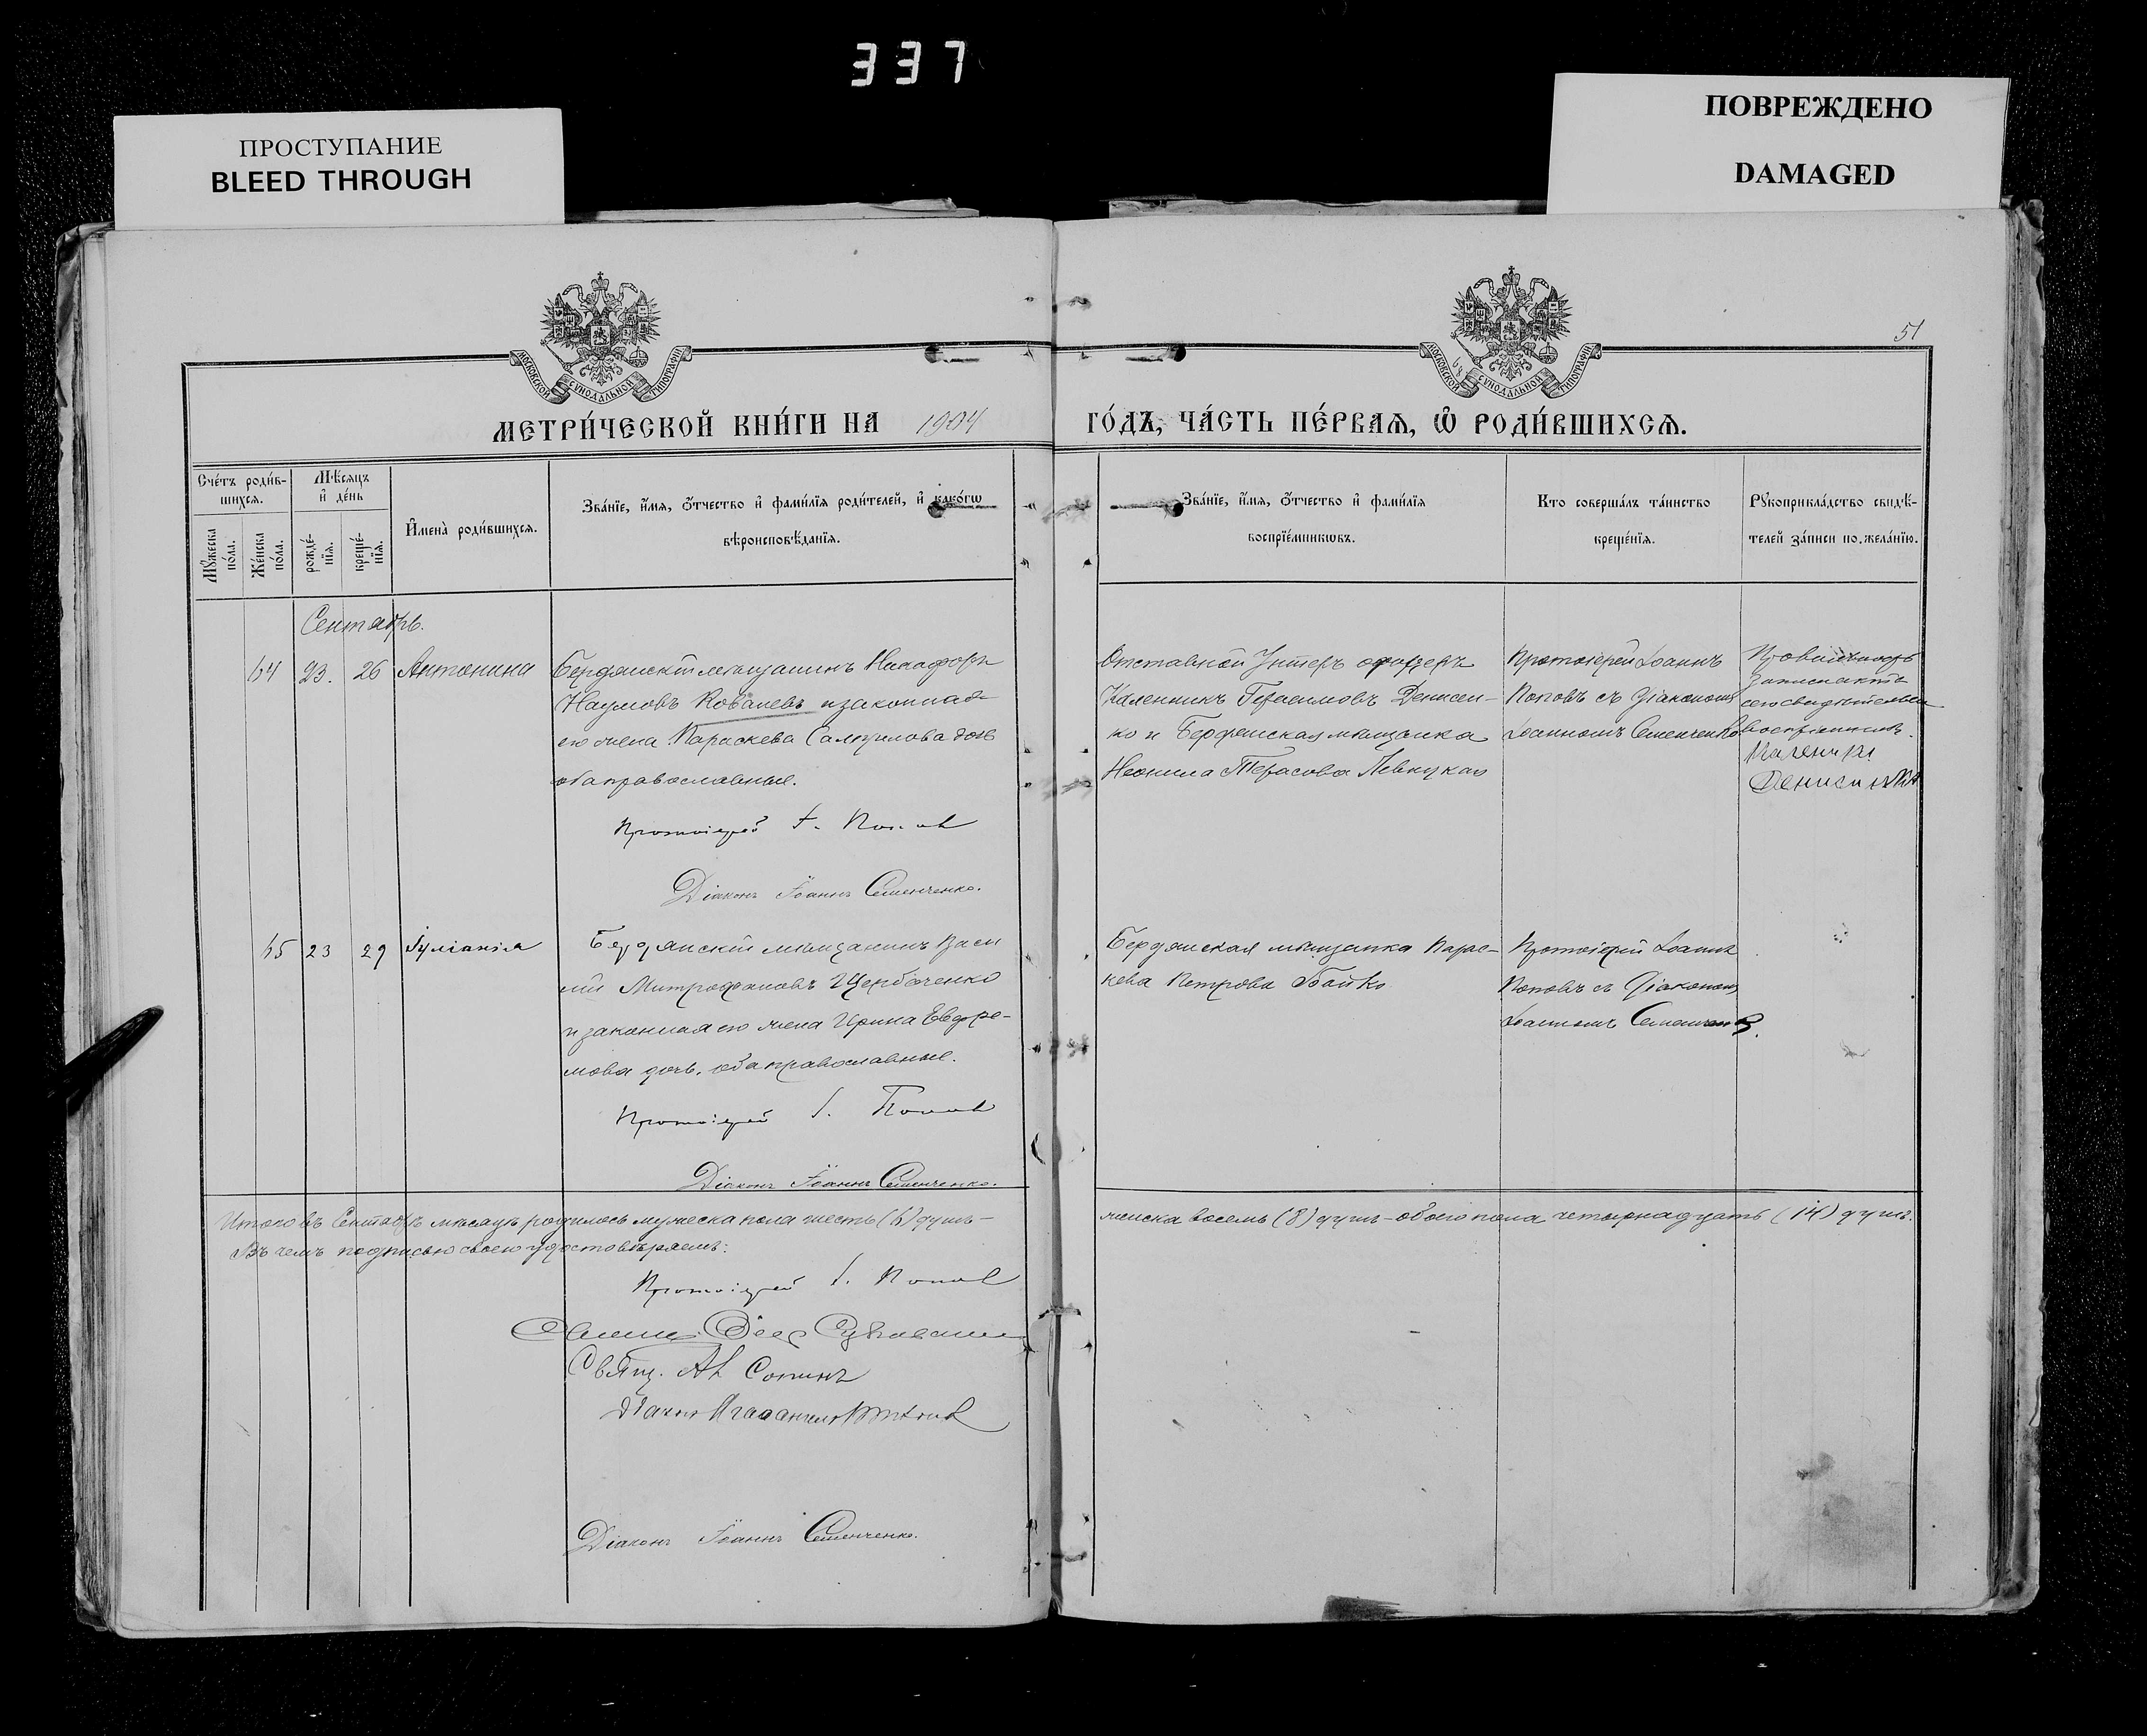 337
ПРОСТУПАНИЕ
BLEED THROUGH
ПОВРЕЖДЕНО
DAMAGED
51
МОСКОВСКОЙ СУНОДАЛЬНОЙ ТИПОГРАФІИ
МОСКОВСКОЙ СУНОДАЛЬНОЙ ТИПОГРАФІИ
МЕТРИ́ЧЕСКОЙ КНИ́ГИ НА 1904
ГО́ДЪ, ЧА́СТЬ ПЕ́РВАѦ, Ѽ РОДИ́ВШИХСѦ.
Сче́тъ роди́в-
шихсѧ.
Мꙋжеска по́ла.
Же́нска по́ла.
Мѣ́сѧцъ
и҆ де́нь
рожде́-
нїѧ.
креще́-
нїѧ.
И҆мена̀ роди́вшихсѧ.
Зва́нїе, и҆́мѧ, ѻ҆́тчество и҆ фами́лїѧ роди́телей, и҆ како́гѡ
вѣроисповѣ́данїѧ.
Зва́нїе, и҆́мѧ, ѻ҆́тчество и҆ фами́лїѧ
воспрїе́мникѡвъ.
Кто соверша́лъ та́инство
креще́нїѧ.
Рꙋкоприкла́дство свидѣ́-
телей за́писи по жела́нїю.
Сентябрь.
64 23. 26 Антонина
Бердянскій мѣщанинъ Никифоръ
Наумовъ Ковалевъ и законная
его жена Параскева дочь
оба православные.
Протоіерей І. Попов
Діаконъ Іоаннъ Семенченко.
Отставной Унтеръ офицеръ
Каленникъ Герасимовъ Денисен-
ко и Бердянская мѣщанка
Неонила Тарасова
Протоіерей Іоаннъ
Поповъ съ Діакономъ
Іоанномъ Семенченко
65 23 29 Іуліанія
Бердянскій мѣщанинъ Васи
лій Митрофановъ Щербаченко
и законная его жена Ирина Евфре-
мова дочь. оба православные.
Протоіерей І. Попов
Діаконъ Іоаннъ Семенченко.
Бердянская мѣщанка Парас-
кева Петрова Бойко
Протоіерей Іоаннъ
Поповъ съ Діакономъ
Іоанномъ Семенченко.
Итого въ Сентябрѣ мѣсяцѣ родилось мужеска пола шесть (6) душъ –
женска восемь (8) душъ – обоего пола четырнадцать (14) душъ.
Въ чемъ подписью своею удостовѣряемъ:
Протоіерей І. Попов
Свящ.
Діаконъ Іоаннъ Семенченко.